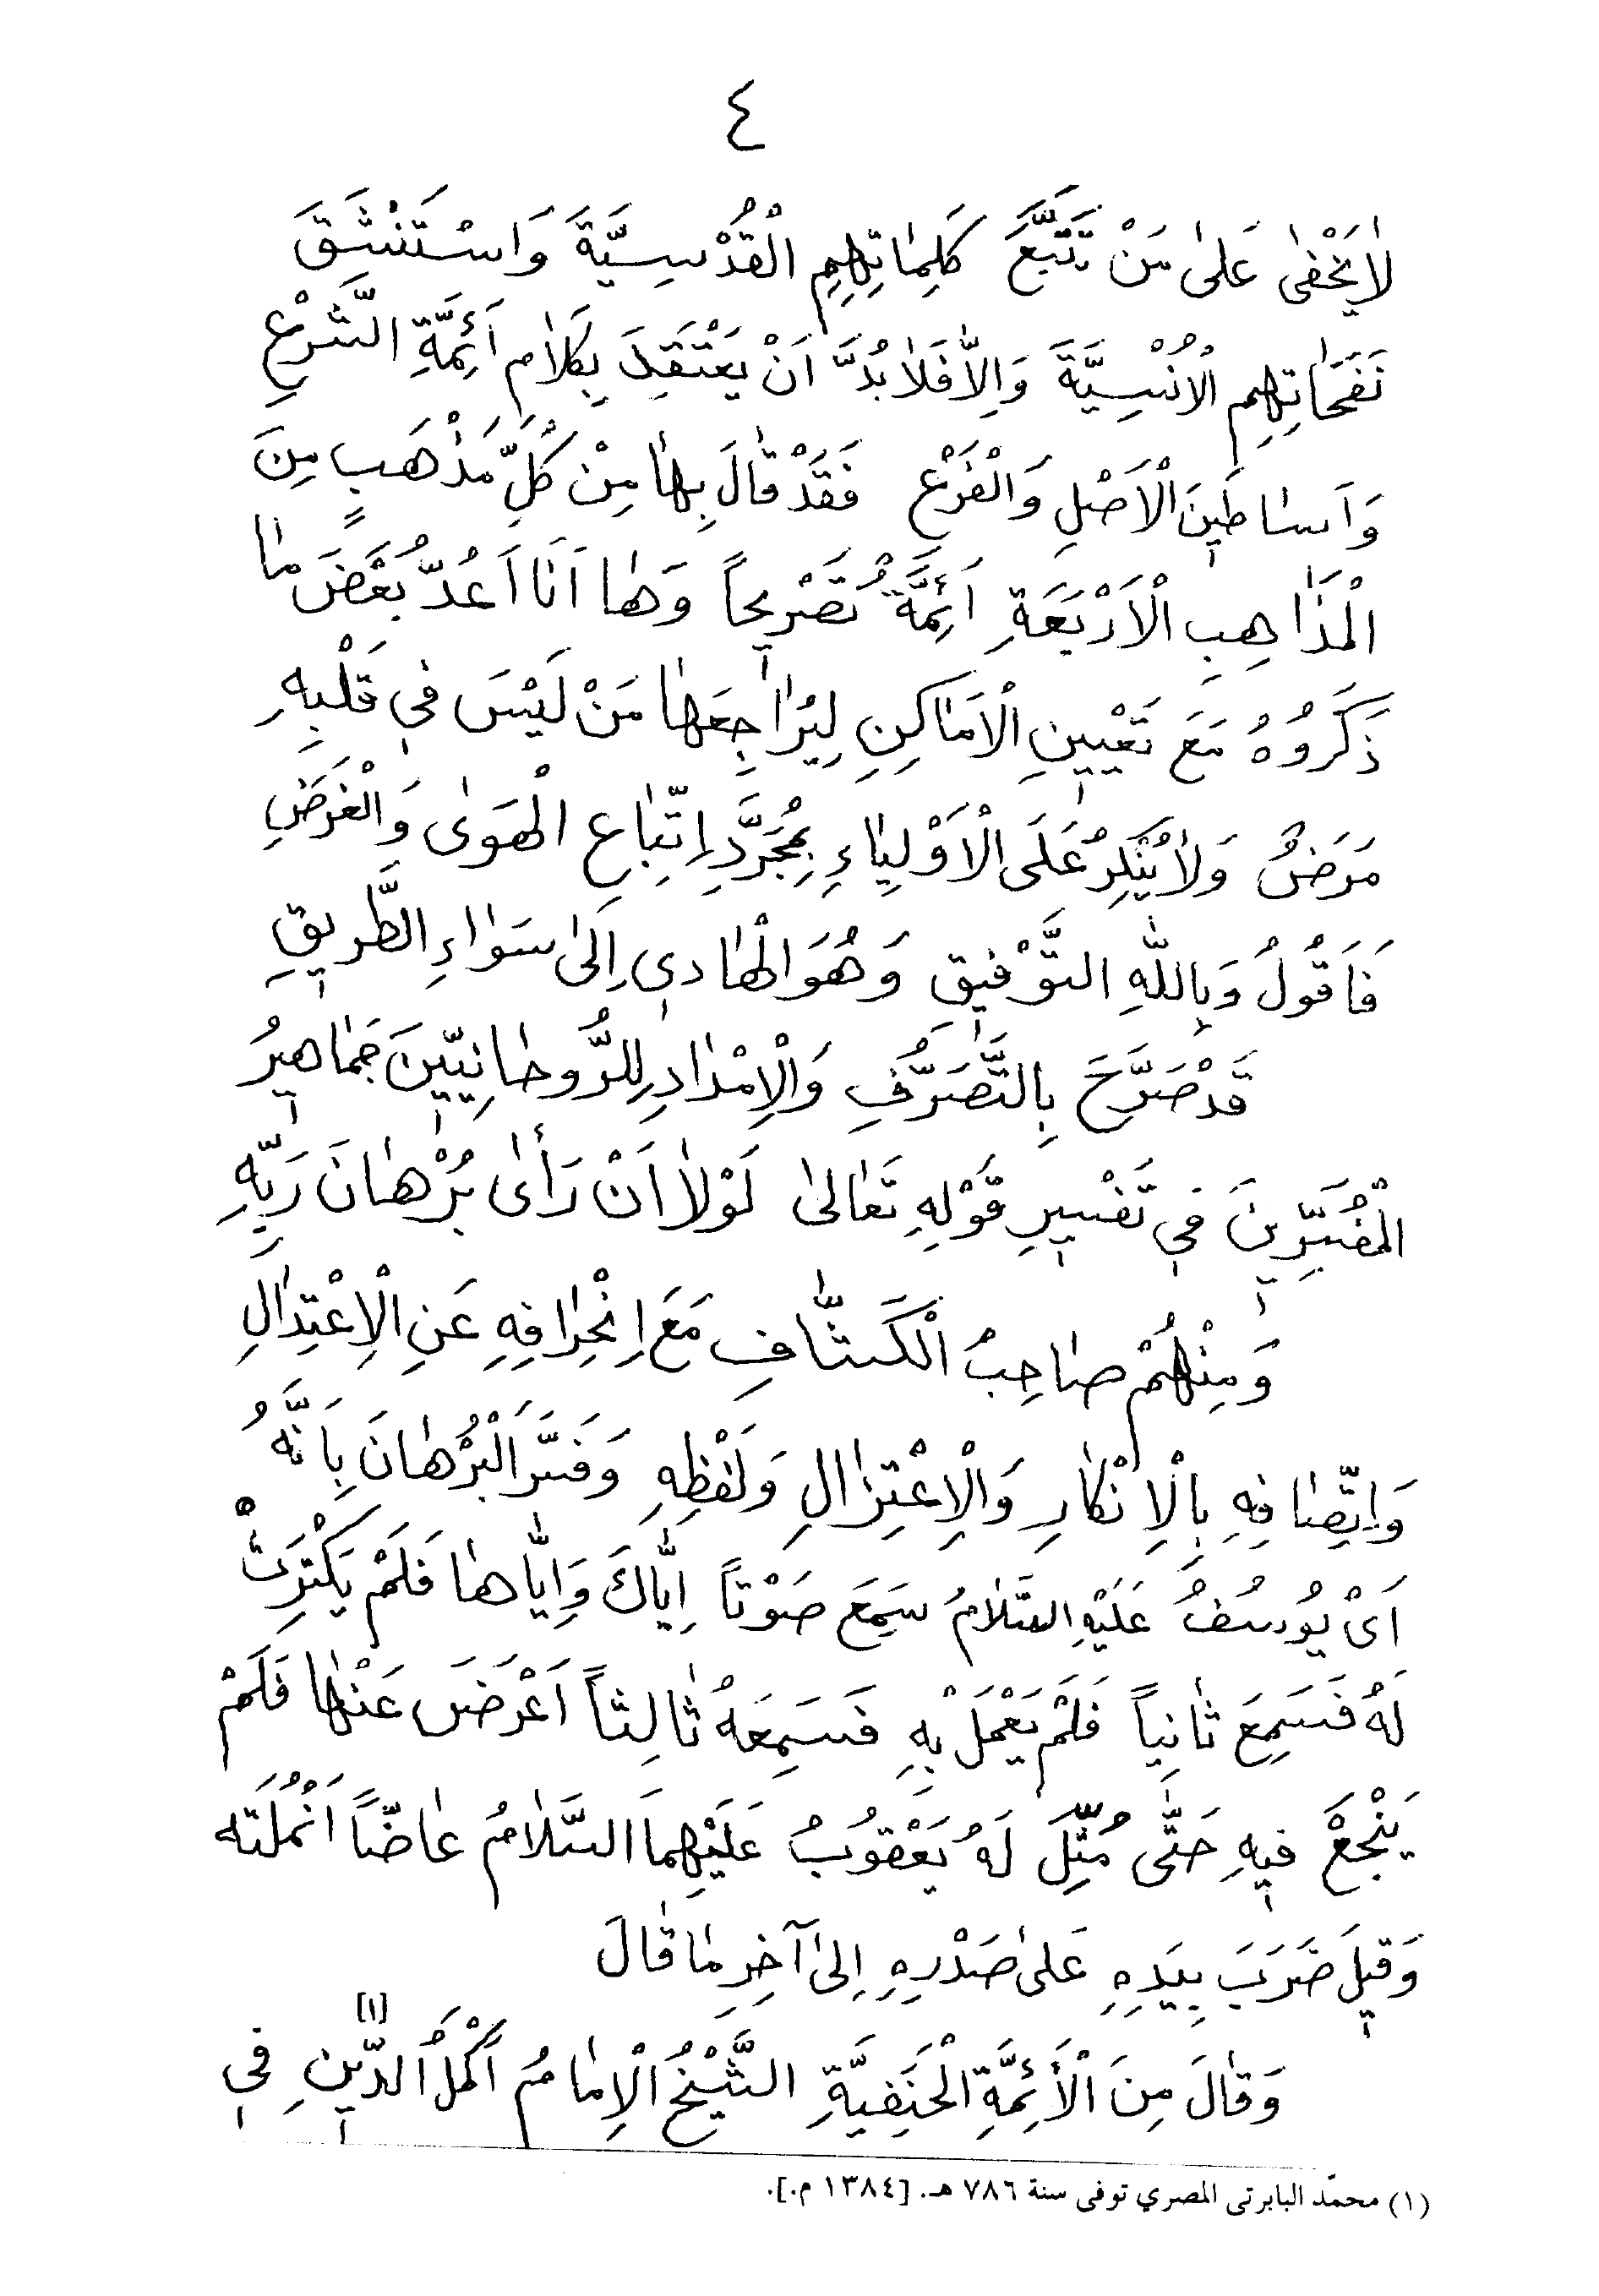 ٤
لَا يَخْفٰى عَلٰى مَنْ تَتَبَّعَ كَلِمَاتِهِمِ الْقُدْسِيَّةَ وَاسْتَنْشَقَ
نَفَحَاتِهِمِ الْاُنْسِيَّةَ وَاِلَّا فَلَا بُدَّ اَنْ يَعْتَقِدَ بِكَلَامِ اَئِمَّةِ الشَّرْعِ
وَاَسَاطِينَ الْاَصْلِ وَالْفَرْعِ فَقَدْ قَالَ بِهَا مِنْ كُلِّ مَذْهَبٍ مِنَ
الْمَذَاهِبِ الْاَرْبَعَةِ اَئِمَّةٌ تَصْرِيحاً وَهَا اَنَا اَعُدُّ بَعْضَ مَا
ذَكَرُوهُ مَعَ تَعْيِينِ الْاَمَاكِنِ لِيُرَاجِعَهَا مَنْ لَيْسَ فِى قَلْبِهِ
مَرَضٌ وَلَا يُنْكِرُ عَلَى الْاَوْلِيَاءِ بِمُجَرَّدِ اِتِّبَاعِ الْهَوٰى وَالْغَرَضِ
فَاَقُولُ وَبِاللّٰهِ التَّوْفِيقِ وَهُوَ الْهَادِى اِلٰى سَوَاءِ الطَّرِيقِ
قَدْ صَرَّحَ بِالتَّصَرُّفِ وَالْاِمْدَادِ لِلرُّوحَانِيِّينَ جَمَاهِيرُ
الْمُفَسِّرِينَ فِى تَفْسِيرِ قَوْلِهِ تَعَالٰى لَوْلَا اَنْ رَأٰى بُرْهَانَ رَبِّهِ
وَمِنْهُمْ صَاحِبُ الْكَشَّافِ مَعَ اِنْحِرَافِهِ عَنِ الْاِعْتِدَالِ
وَاِتِّصَافِهِ بِالْاِنْكَارِ وَالْاِعْتِزَالِ وَلَفْظِهِ وَفَسَّرَ الْبُرْهَانَ بِاَنَّهُ
اَىْ يُوسُفُ عَلَيْهِ السَّلَامُ سَمِعَ صَوْتاً اِيَّاكَ وَاِيَّاهَا فَلَمْ يَكْتَرِثْ
لَهُ فَسَمِعَ ثَانِياً فَلَمْ يَعْمَلْ بِهِ فَسَمِعَهُ ثَالِثاً اَعْرَضَ عَنْهَا فَلَمْ
يَنْجَعْ فِيهِ حَتَّى مُثِّلَ لَهُ يَعْقُوبُ عَلَيْهِمَا السَّلَامُ عَاضّاً اَنْمُلَتَه
وَقِيلَ ضَرَبَ بِيَدِهِ عَلٰى صَدْرِهِ اِلٰى آخِرِ مَا قَالَ
وَقَالَ مِنَ الْأَئِمَّةِ الْحَنَفِيَّةِ الشَّيْخُ الْاِمَامُ اَكْمَلُ الدِّينِ [١] فِى
(١) محمّد البابرتى المصري توفى سنة ٧٨٦ هـ. [١٣٨٤ م.].